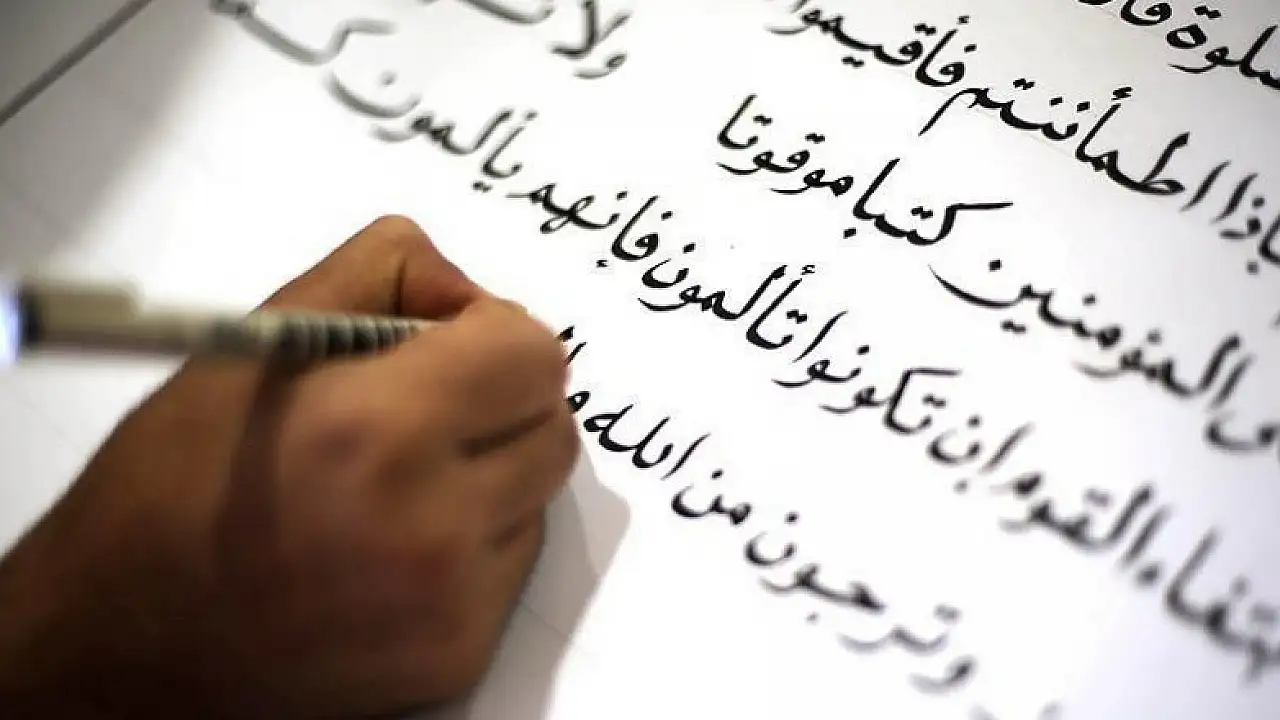 صلوة فا
فاذا اطمأننتم فأقيموا
المؤمنين كتبا موقوتا ولا ته
ابتغاء القوم ان تكونوا تألمون فانهم يألمون كما
وترجون من الله ما